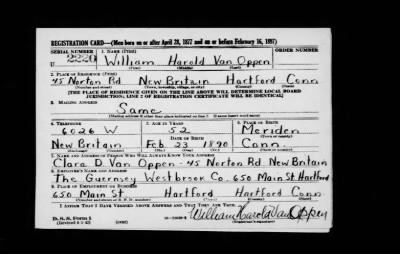 REGISTRATION CARD—(Men born on or after April 28, 1877 and on or before February 16, 1897)
SERIAL NUMBER 1. NAME (Print) ORDER NUMBER
U 2220 William Harold Van Oppen
(First) (Middle) (Last)
2. PLACE OF RESIDENCE (Print)
45 Norton Rd New Britain Hartford Conn
(Number and street) (Town, township, village, or city) (County) (State)
[THE PLACE OF RESIDENCE GIVEN ON THE LINE ABOVE WILL DETERMINE LOCAL BOARD
JURISDICTION; LINE 2 OF REGISTRATION CERTIFICATE WILL BE IDENTICAL]
3. MAILING ADDRESS
Same
(Mailing address if other than place indicated on line 2. If same insert word same)
4. TELEPHONE 5. AGE IN YEARS 6. PLACE OF BIRTH
6026 W 52 Meriden
DATE OF BIRTH (Town or county)
New Britain Feb. 23 1890 Conn.
(Exchange) (Number) (Mo.) (Day) (Yr.) (State or country)
7. NAME AND ADDRESS OF PERSON WHO WILL ALWAYS KNOW YOUR ADDRESS
Clara D. Van Oppen - 45 Norton Rd New Britain
8. EMPLOYER'S NAME AND ADDRESS
The Guernsey Westbrook Co. 650 Main St. Hartford
9. PLACE OF EMPLOYMENT OR BUSINESS
650 Main St Hartford Hartford Conn
(Number and street or R. F. D. number) (Town) (County) (State)
I AFFIRM THAT I HAVE VERIFIED ABOVE ANSWERS AND THAT THEY ARE TRUE.
D. S. S. Form 1
(Revised 4-1-42) William Harold Van Oppen